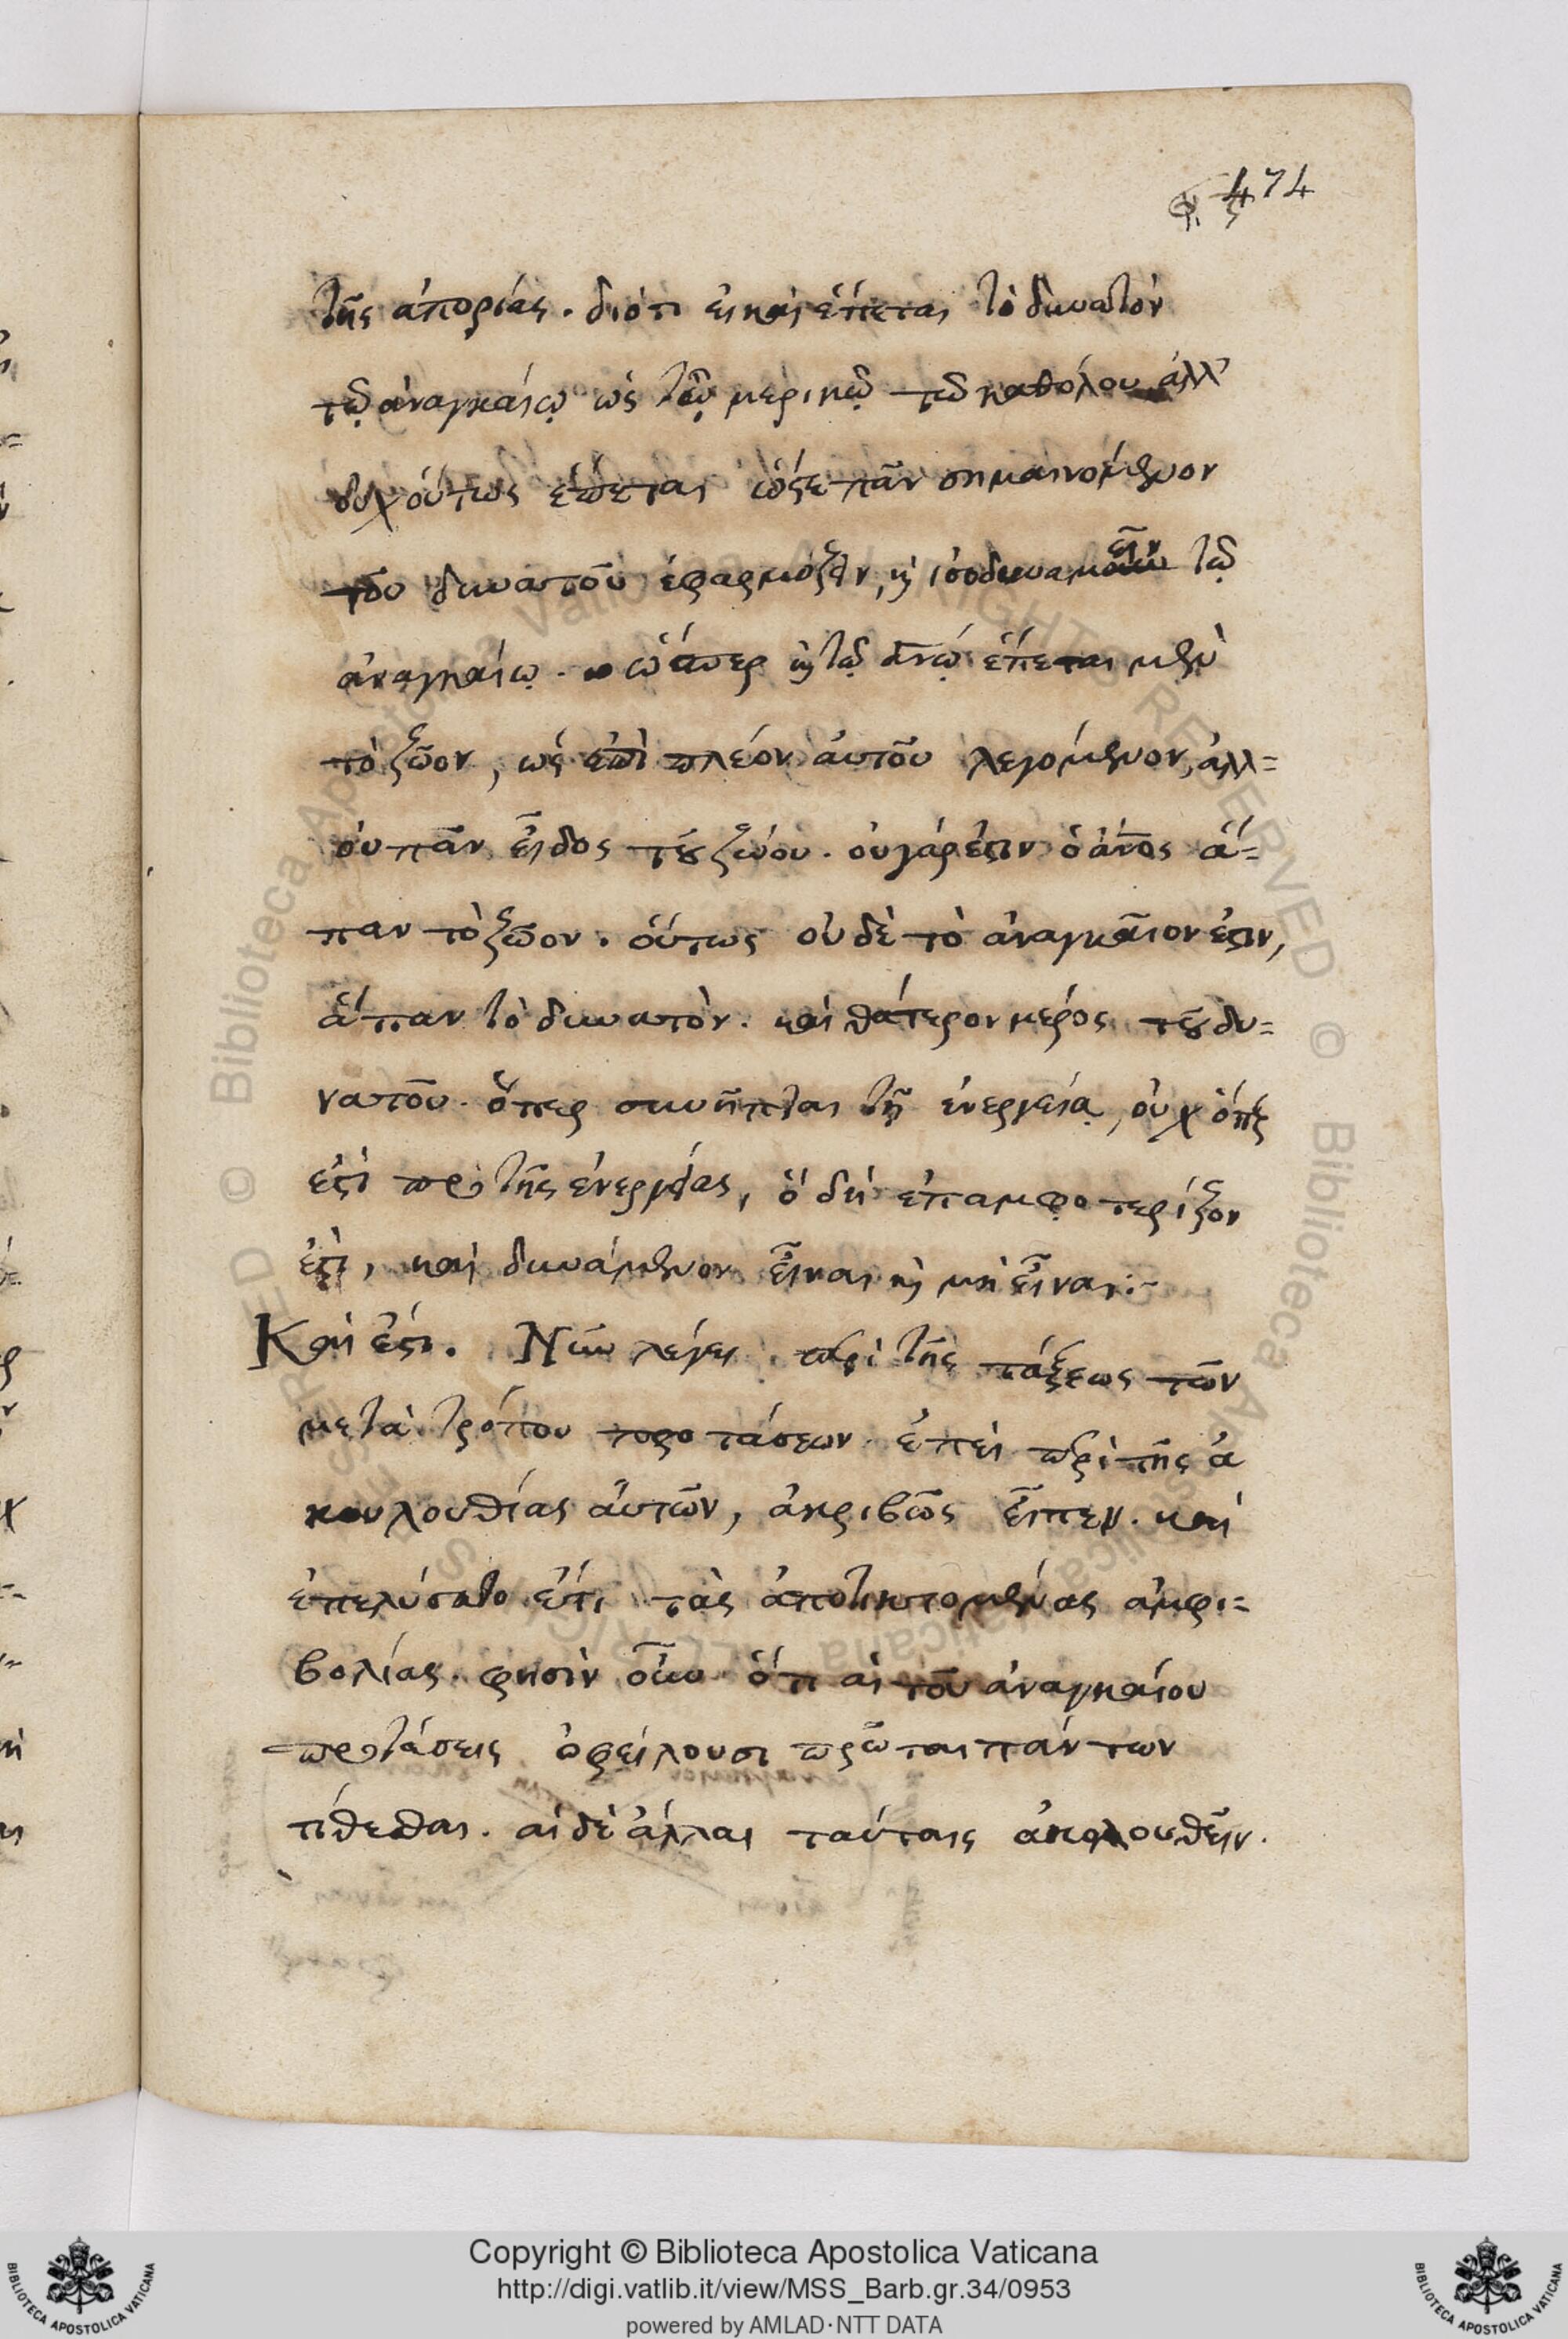 474
τῆς ἀπορίας. διότι εἰ καὶ ἕπεται τὸ δυνατὸν
τῷ ἀναγκαίῳ ὡς τῷ μερικῷ τὸ καθόλου ἀλλ'
οὐχ οὕτως ἕπεται ὥστε πᾶν σημαινόμενον
τοῦ δυνατοῦ ἐφαρμόζειν, κ ἰσοδυναμεῖν τῷ
ἀναγκαίῳ. ὥσπερ κ τῷ ἀνῳ ἕπεται μὲν
τὸ ζῶον, ὡς ἐπὶ πλέον αὐτοῦ λεγόμενον, ἀλλ=
οὐ πᾶν εἶδος τοῦ ζώου. οὐ γάρ ἐστιν ὁ ἀνος ἅ=
παν τὸ ζῶον. οὕτως οὐδὲ τὸ ἀναγκαῖον ἐστιν,
ἅπαν τὸ δυνατὸν. καὶ θάτερον μέρος τοῦ δυ=
νατοῦ. ὅπερ συνῆπται τῇ ἐνεργείᾳ, οὐχ ὅπερ
ἐστὶ πρὸ τῆς ἐνεργείας, ὃ δὴ ἐπαμφοτερίζον
ἐστὶ, καὶ δυνάμενον εἶναι κ μὴ εἶναι:-
Καὶ ἔστι. Νῦν λέγει περὶ τῆς τάξεως τῶν
μετὰ τρόπου προτάσεων. ἐπεὶ περὶ τῆς ἀ
κουλουθίας αὐτῶν, ἀκριβῶς εἶπεν. καὶ
ἐπελύσατο ἔτι τὰς ἀποτικτομένας ἀμφι=
βολίας. φησὶν οὖν ὅτι αἱ τοῦ ἀναγκαίου
προτάσεις ὀφείλουσι πρῶται πάντων
τίθεσθαι. αἱ δὲ ἄλλαι ταύταις ἀκολουθεῖν.
Copyright © Biblioteca Apostolica Vaticana
http://digi.vatlib.it/view/MSS_Barb.gr.34/0953
powered by AMLAD·NTT DATA